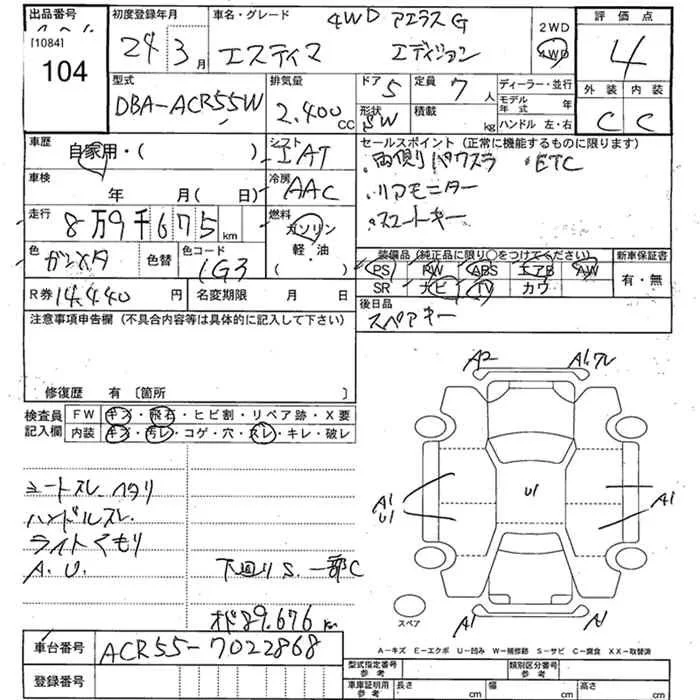 出品番号
[1084]
104
初度登録年月
24 3月
車名・グレード
4WD アエラス G
エスティマ エディション
2WD
4WD
評価点
4
外装 内装
C C
型式
DBA-ACR55W
排気量
2.400 CC
ドア 5
形状 SW
定員 7人
積載 kg
ディーラー・並行
モデル年式 年
ハンドル 左・右
車歴
自家用・( )
シフト
IAT
セールスポイント (正常に機能するものに限ります)
両側パワスラ ・ETC
リアモニター
スマートキー
車検
年 月( 日)
冷房
AAC
走行
8万9千675km
燃料
ガソリン
軽・油
( )
色
ガンメタ
色替
色コード
1G3
装備品 (純正品に限り○をつけてください)
PS RW ABS エアB AW
SR ナビ TV カワ
新車保証書
有・無
R券 14,440 円
名変期限 月 日
後日品
スペアキー
注意事項申告欄 (不具合内容等は具体的に記入して下さい)
修復歴 有 〔箇所 〕
検査員記入欄
FW キズ・飛石・ヒビ割・リペア跡・X要
内装 キズ・汚レ・コゲ・穴・スレ・キレ・破レ
シートスレ ヘタリ
ハンドルスレ
ライトくもり
A.U.
下廻りS. 一部C
オド89.676km
A2
A1
U1
A1
U1
A1
スペア
A-キズ E-エクボ U-凹み W-補修跡 S-サビ C-腐食 XX-取替済
車台番号
ACR55-7022868
登録番号
型式指定番号参考
類別区分番号参考
車庫証明用参考
長さ cm
幅 cm
高さ cm